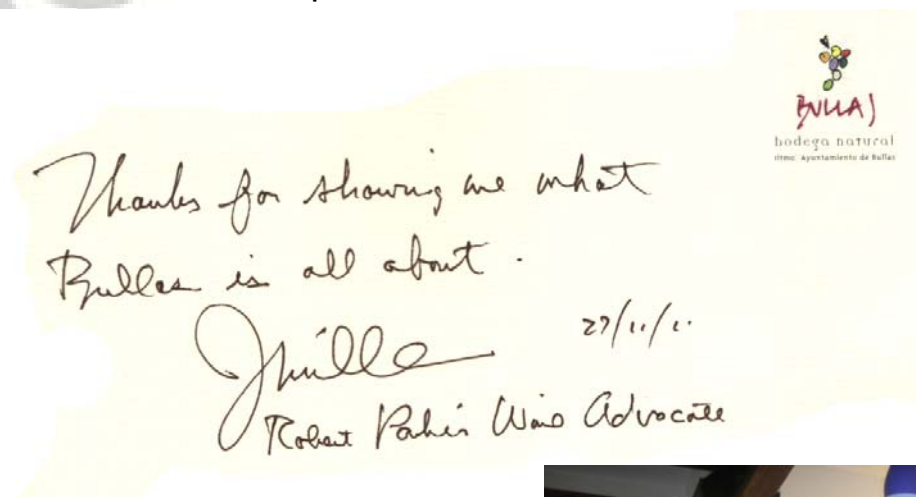 BULLAS
bodega natural
Iltmo. Ayuntamiento de Bullas
Thanks for showing me what
Bullas is all about.
JMiller
27/11/11
Robert Parker's Wine Advocate